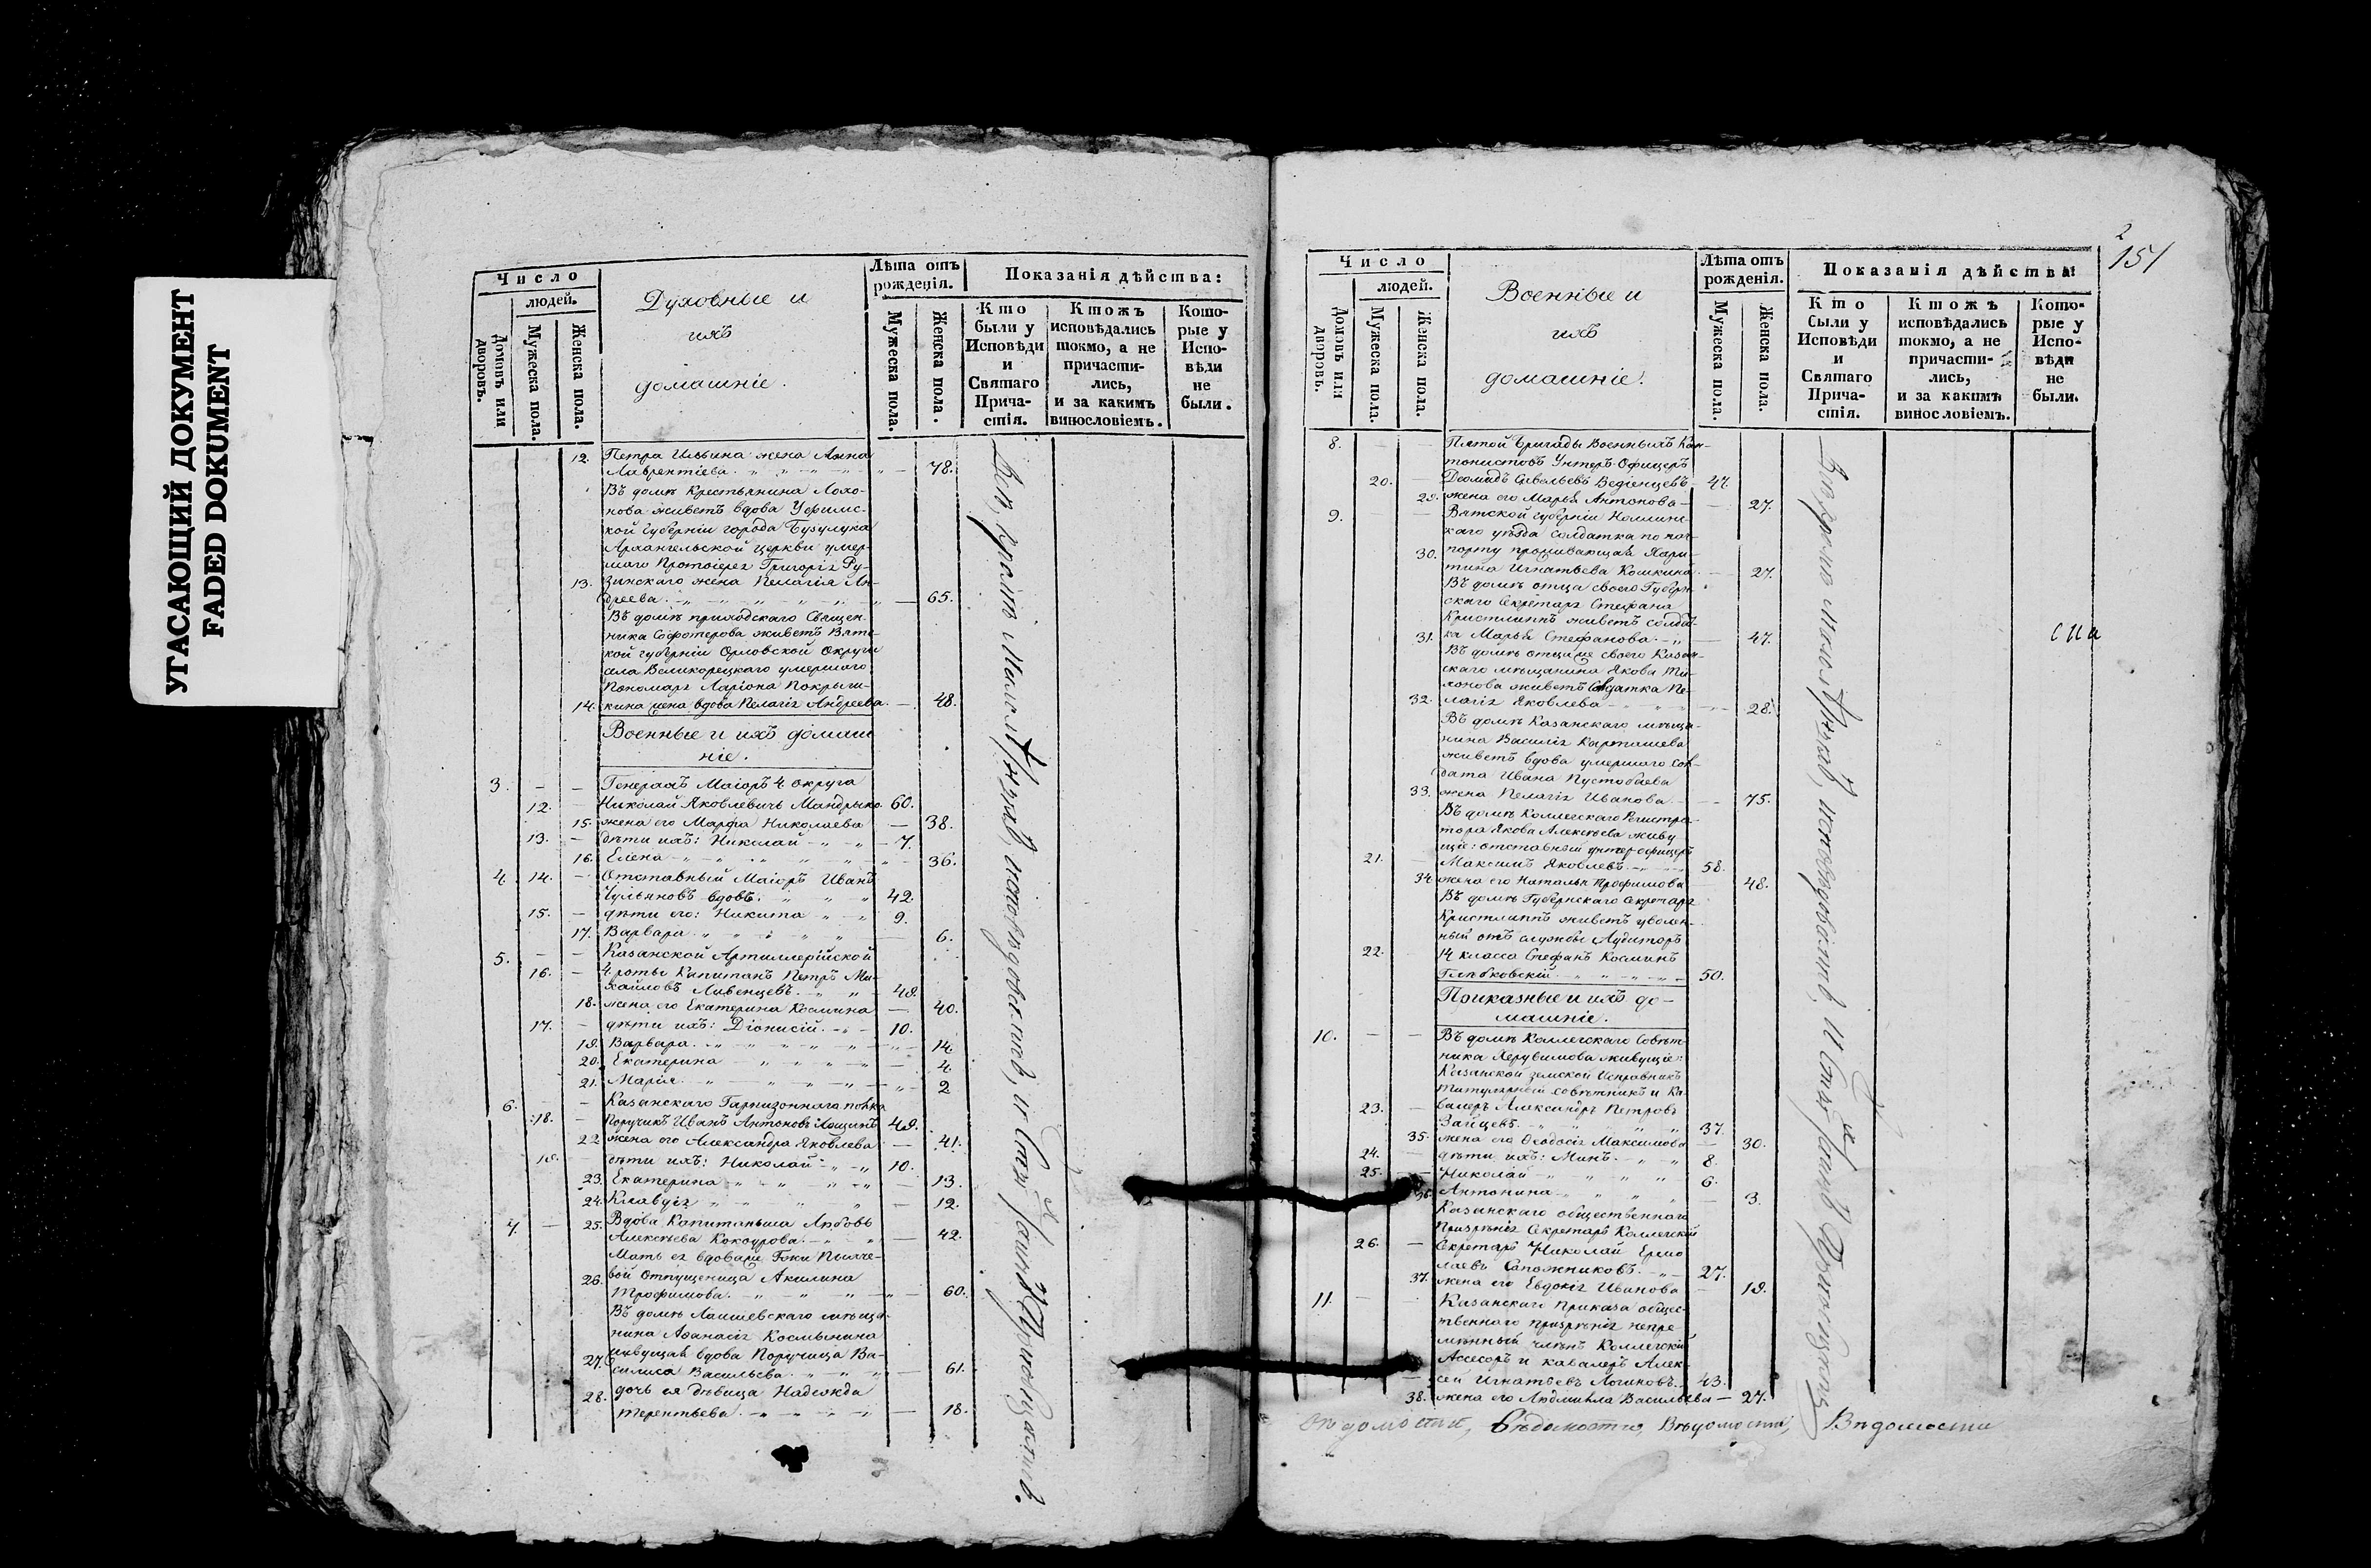 УГАСАЮЩИЙ ДОКУМЕНТ
FADED DOKUMENT
Число
людей.
Домовъ или дворовъ.
Мужеска пола.
Женска пола.
Духовные и
ихъ
домашніе.
Лѣта отъ рожденія.
Мужеска пола.
Женска пола.
Показанія дѣйства:
Кто были у Исповѣди и Святаго Причастія.
Ктожъ исповѣдались токмо, а не причастились, и за какимъ винословіемъ.
Которые у Исповѣди не были.
12. Петра Ильина жена Анна
Лаврентіева 78.
Въ домѣ крестьянина Лохо-
нова живетъ вдова Уфимс-
кой губерніи города Бузулука
Архангельской церкви умер-
шаго Протоіерея Григорія Ру-
13. зинскаго жена Пелагія Ан-
дреева 65.
Въ домѣ приходскаго Священ-
ника Софотерова живетъ Вятс-
кой губерніи Орловской округи
села Великорецкаго умершаго
Пономаря Ларіона Покрыш-
14. кина жена вдова Пелагія Андреева 48.
Военные и ихъ домаш
ніе.
3. Генералъ Маіоръ 4 округа
12. Николай Яковлевичь Мандрыка 60.
15. жена его Марфа Николаева 38.
13. дѣти ихъ: Николай 7.
16. Елена 36.
4. 14. Отставный Маіоръ Иванъ
Чульяновъ вдовъ 42.
15. дѣти его: Никита 9.
17. Варвара 6.
5. Казанской Артиллерійской
16. 4 роты Капитанъ Петръ Ми-
хайловъ Ливенцевъ 49.
18. жена его Екатерина Космина 40.
17. дѣти ихъ: Діонисій 10.
19. Варвара 14.
20. Екатерина 4.
21. Марія 2
6. Казанскаго Гарнизоннаго полка
18. Поручикъ Иванъ Антоновъ 49.
22. жена его Александра Яковлева 41.
19. дѣти ихъ: Николай 10.
23. Екатерина 13.
24. Клавдія 12.
7. 25. Вдова Капитанша Любовь
Алексѣева Кокоурова 42.
Мать ея вдовая Гжи
26. вой отпущеница Акилина
Трофимова 60.
Въ домѣ Лаишевскаго мѣща-
нина Аѳанасія Космынина
27. живущая вдова Поручица Ва-
силиса Васильева 61.
28. дочь ея дѣвица Надежда
Терентьева 18.
2
151
Число
людей.
Домовъ или дворовъ.
Мужеска пола.
Женска пола.
Военные и
ихъ
домашніе.
Лѣта отъ рожденія.
Мужеска пола.
Женска пола.
Показанія дѣйства:
Кто были у Исповѣди и Святаго Причастія.
Ктожъ исповѣдались токмо, а не причастились, и за какимъ винословіемъ.
Которые у Исповѣди не были.
8. Пятой бригады Военныхъ Кан-
тонистовъ Унтеръ-Офицеръ
20. Деомидъ Савельевъ 47.
29. жена его Марья Антонова 27.
9. Вятской губерніи
каго уѣзда солдатка по пас-
30. порту проживающая Хари-
тина Игнатьева Кошкина 27.
Въ домѣ отца своего Губерн-
скаго Секретаря Стефана
Кристлиппъ живетъ солдат-
31. ка Марья Стефанова 47.
Въ домѣ отца же своего Казан-
скаго мѣщанина Якова Ти-
хонова живетъ Солдатка Пе-
32. лагія Яковлева 28.
Въ домѣ Казанскаго мѣща-
нина Василія Карташева
живетъ вдова умершаго сол-
дата Ивана Пустобаева
33. жена Пелагія Иванова 75.
Въ домѣ Коллежскаго Регистра-
тора Якова Алексѣева живу
щіе: отставный унтер-офицеръ
21. Максимъ Яковлевъ 58.
34. жена его Наталья Трофимова 48.
Въ домѣ Губернскаго Секретаря
Кристлиппъ живетъ уволен-
ный отъ службы Аудиторъ
22. 14 класса Стефанъ Косминъ
Глѣбковскій 50.
Приказные и ихъ до-
машніе.
10. Въ домѣ Коллежскаго Совѣт-
ника Херувимова живущіе:
Казанской земской Исправникъ
титулярный совѣтникъ и Ка-
23. валеръ Александръ Петровъ
Зайцевъ 37.
35. жена его Ѳеодосія Максимова 30.
24. дѣти ихъ: 8.
25. Николай 6.
36. Антонина 3.
Казанскаго общественнаго
Призрѣнія Секретарь Коллежскій
26. Секретарь Николай Ермо
лаевъ Сапожниковъ 27.
37. жена его Евдокія Иванова 19.
11. Казанскаго Приказа обще-
твеннаго призрѣнія непре-
мѣнный членъ Коллежскій
Асесоръ и кавалеръ Алек-
сѣй Игнатьевъ Логиновъ 43.
38. жена его Людмила Васильева 27.
Вѣдомости, Вѣдомости